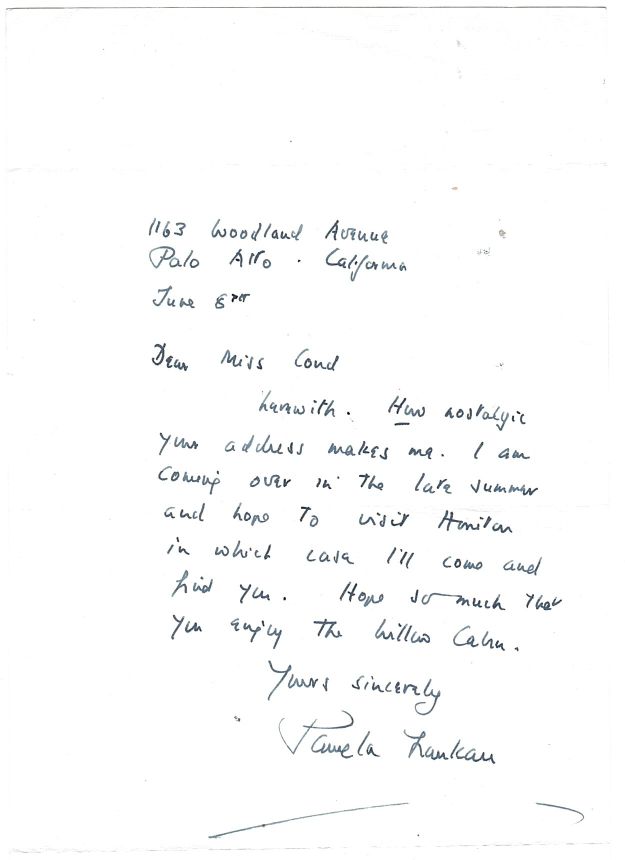 1163 Woodland Avenue
Palo Alto . California
June 8th
Dear Miss
herewith. How nostalgic
your address makes me. I am
coming over in the late summer
and hope to visit Honiton
in which case I'll come and
find you. Hope so much that
you enjoy the Willow Cabin.
Yours sincerely
Pamela Frankau